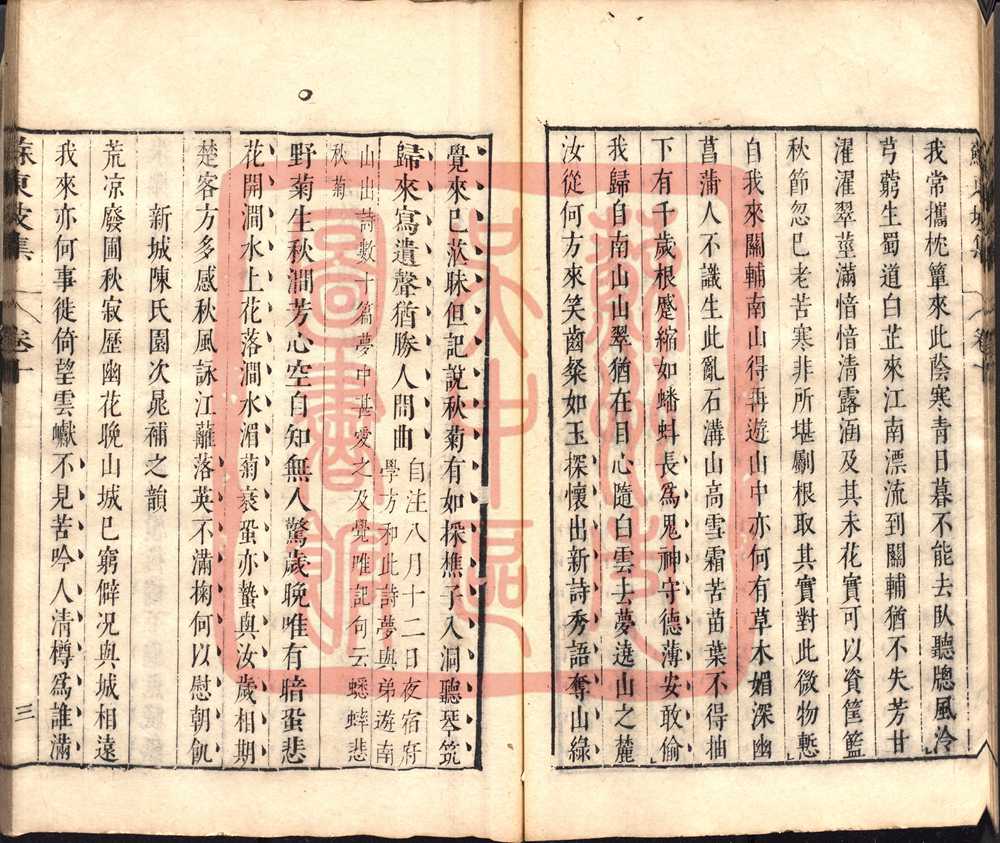 蘇東坡集 卷十
我常攜枕簟來此蔭寒青日暮不能去臥聽牕風泠
芎藭生蜀道白芷來江南漂流到關輔猶不失芳甘
濯濯翠莖滿愔愔清露涵及其未花實可以資筐籃
秋節忽已老苦寒非所堪劚根取其實對此微物慙
自我來關輔南山得再遊山中亦何有草木媚深幽
菖蒲人不識生此亂石溝山高雪霜苦苗葉不得抽
下有千歲根蹙縮如蟠蚪長為鬼神守德薄安敢偷
我歸自南山山翠猶在目心隨白雲去夢遶山之麓
汝從何方來笑齒粲如玉探懷出新詩秀語奪山綠
覺來已茫昧但記說秋菊有如採樵子入洞聽琴筑
歸來寫遺聲猶勝人間曲自注八月十二日夜宿府
學方和此詩夢與弟遊南
山出詩數十篇夢中甚愛之及覺唯記句云蟋蟀悲
秋菊
野菊生秋澗芳心空自知無人驚歲晚唯有暗蛩悲
花開澗水上花落澗水湄菊衰蛩亦蟄與汝歲相期
楚客方多感秋風詠江蘺落英不滿掬何以慰朝飢
新城陳氏園次晁補之韻
荒凉廢圃秋寂歷幽花晚山城已窮僻况與城相遠
我來亦何事徙倚望雲巘不見苦吟人清樽為誰滿
蘇東坡集 卷十 三
蘇州 吳中區 圖書館